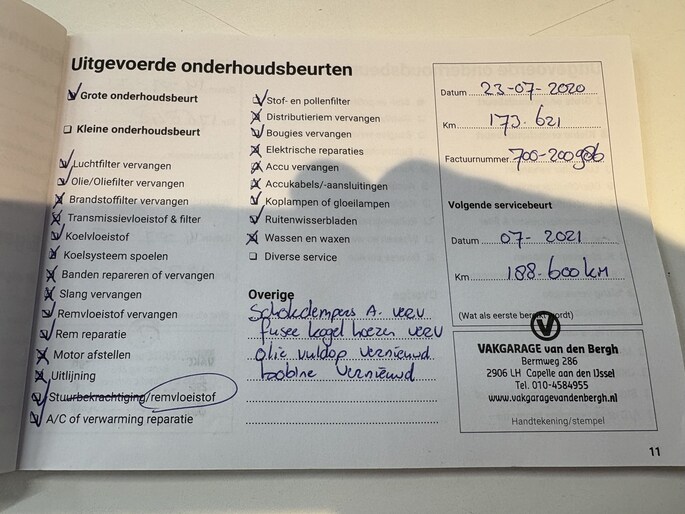 Uitgevoerde onderhoudsbeurten
Grote onderhoudsbeurt
Kleine onderhoudsbeurt
Luchtfilter vervangen
Olie/Oliefilter vervangen
Brandstoffilter vervangen
Transmissievloeistof & filter
Koelvloeistof
Koelsysteem spoelen
Banden repareren of vervangen
Slang vervangen
Remvloeistof vervangen
Rem reparatie
Motor afstellen
Uitlijning
Stuurbekrachtiging/remvloeistof
A/C of verwarming reparatie
Stof- en pollenfilter
Distributieriem vervangen
Bougies vervangen
Elektrische reparaties
Accu vervangen
Accukabels/-aansluitingen
Koplampen of gloeilampen
Ruitenwisserbladen
Wassen en waxen
Diverse service
Overige
Schokdempers A. verv
fusee kogel hoezen verv
olie vuldop vernieuwd
bobine vernieuwd
Datum 23-07-2020
Km 173.621
Factuurnummer
Volgende servicebeurt
Datum 07-2021
Km 188.600 km
(Wat als eerste bereikt wordt)
V
VAKGARAGE van den Bergh
Bermweg 286
2906 LH Capelle aan den IJssel
Tel. 010-4584955
www.vakgaragevandenbergh.nl
Handtekening/stempel
11